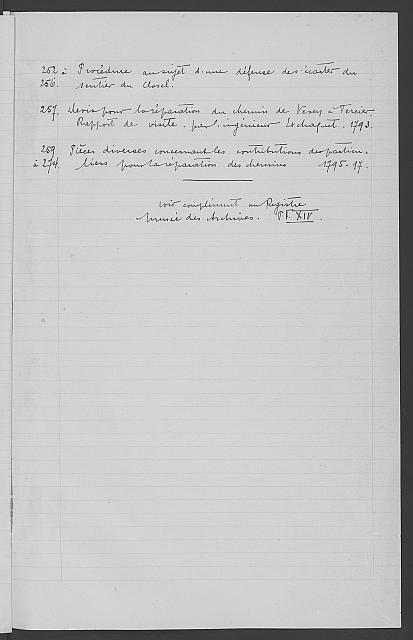 252 à Procédure au sujet d'une défense des écarter du
256. sentier du Closel.
257. Devis pour la réparation du chemin de Vevey à Tercier.
Rapport de visite par l'ingénieur Exchaquet. 1793.
259 Pièces diverses concernant les contributions des particu-
à 274. liers pour la réparation des chemins 1795-97.
voir complément au Registre
Musée des Archives. P. XIV.